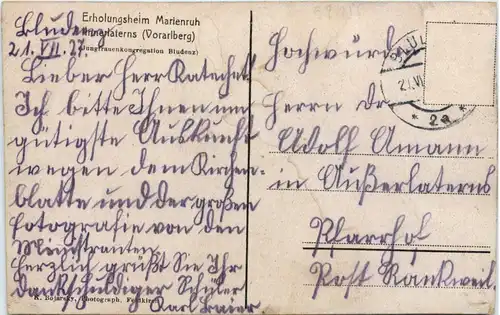 Erholungsheim Marienruh
Innerlaterns (Vorarlberg)
(Jungfrauenkongregation Bludenz)
Bludenz
21. VII. 27.
Lieber Herr Katechet!
Ich bitte Ihnen um
gütigste Auskunft
wegen dem Kirchen-
blatte und der großen
Fotografie von den
Ministranten.
Herzlich grüßt Sie Ihr
dankschuldiger Schüler
Karl
K. Bojarsky, Photograph, Feldkirch
Hochwürd.
Herrn Dr
Adolf Amann
in Außerlaterns
Pfarrhof
Post Rankweil.
* 2a *